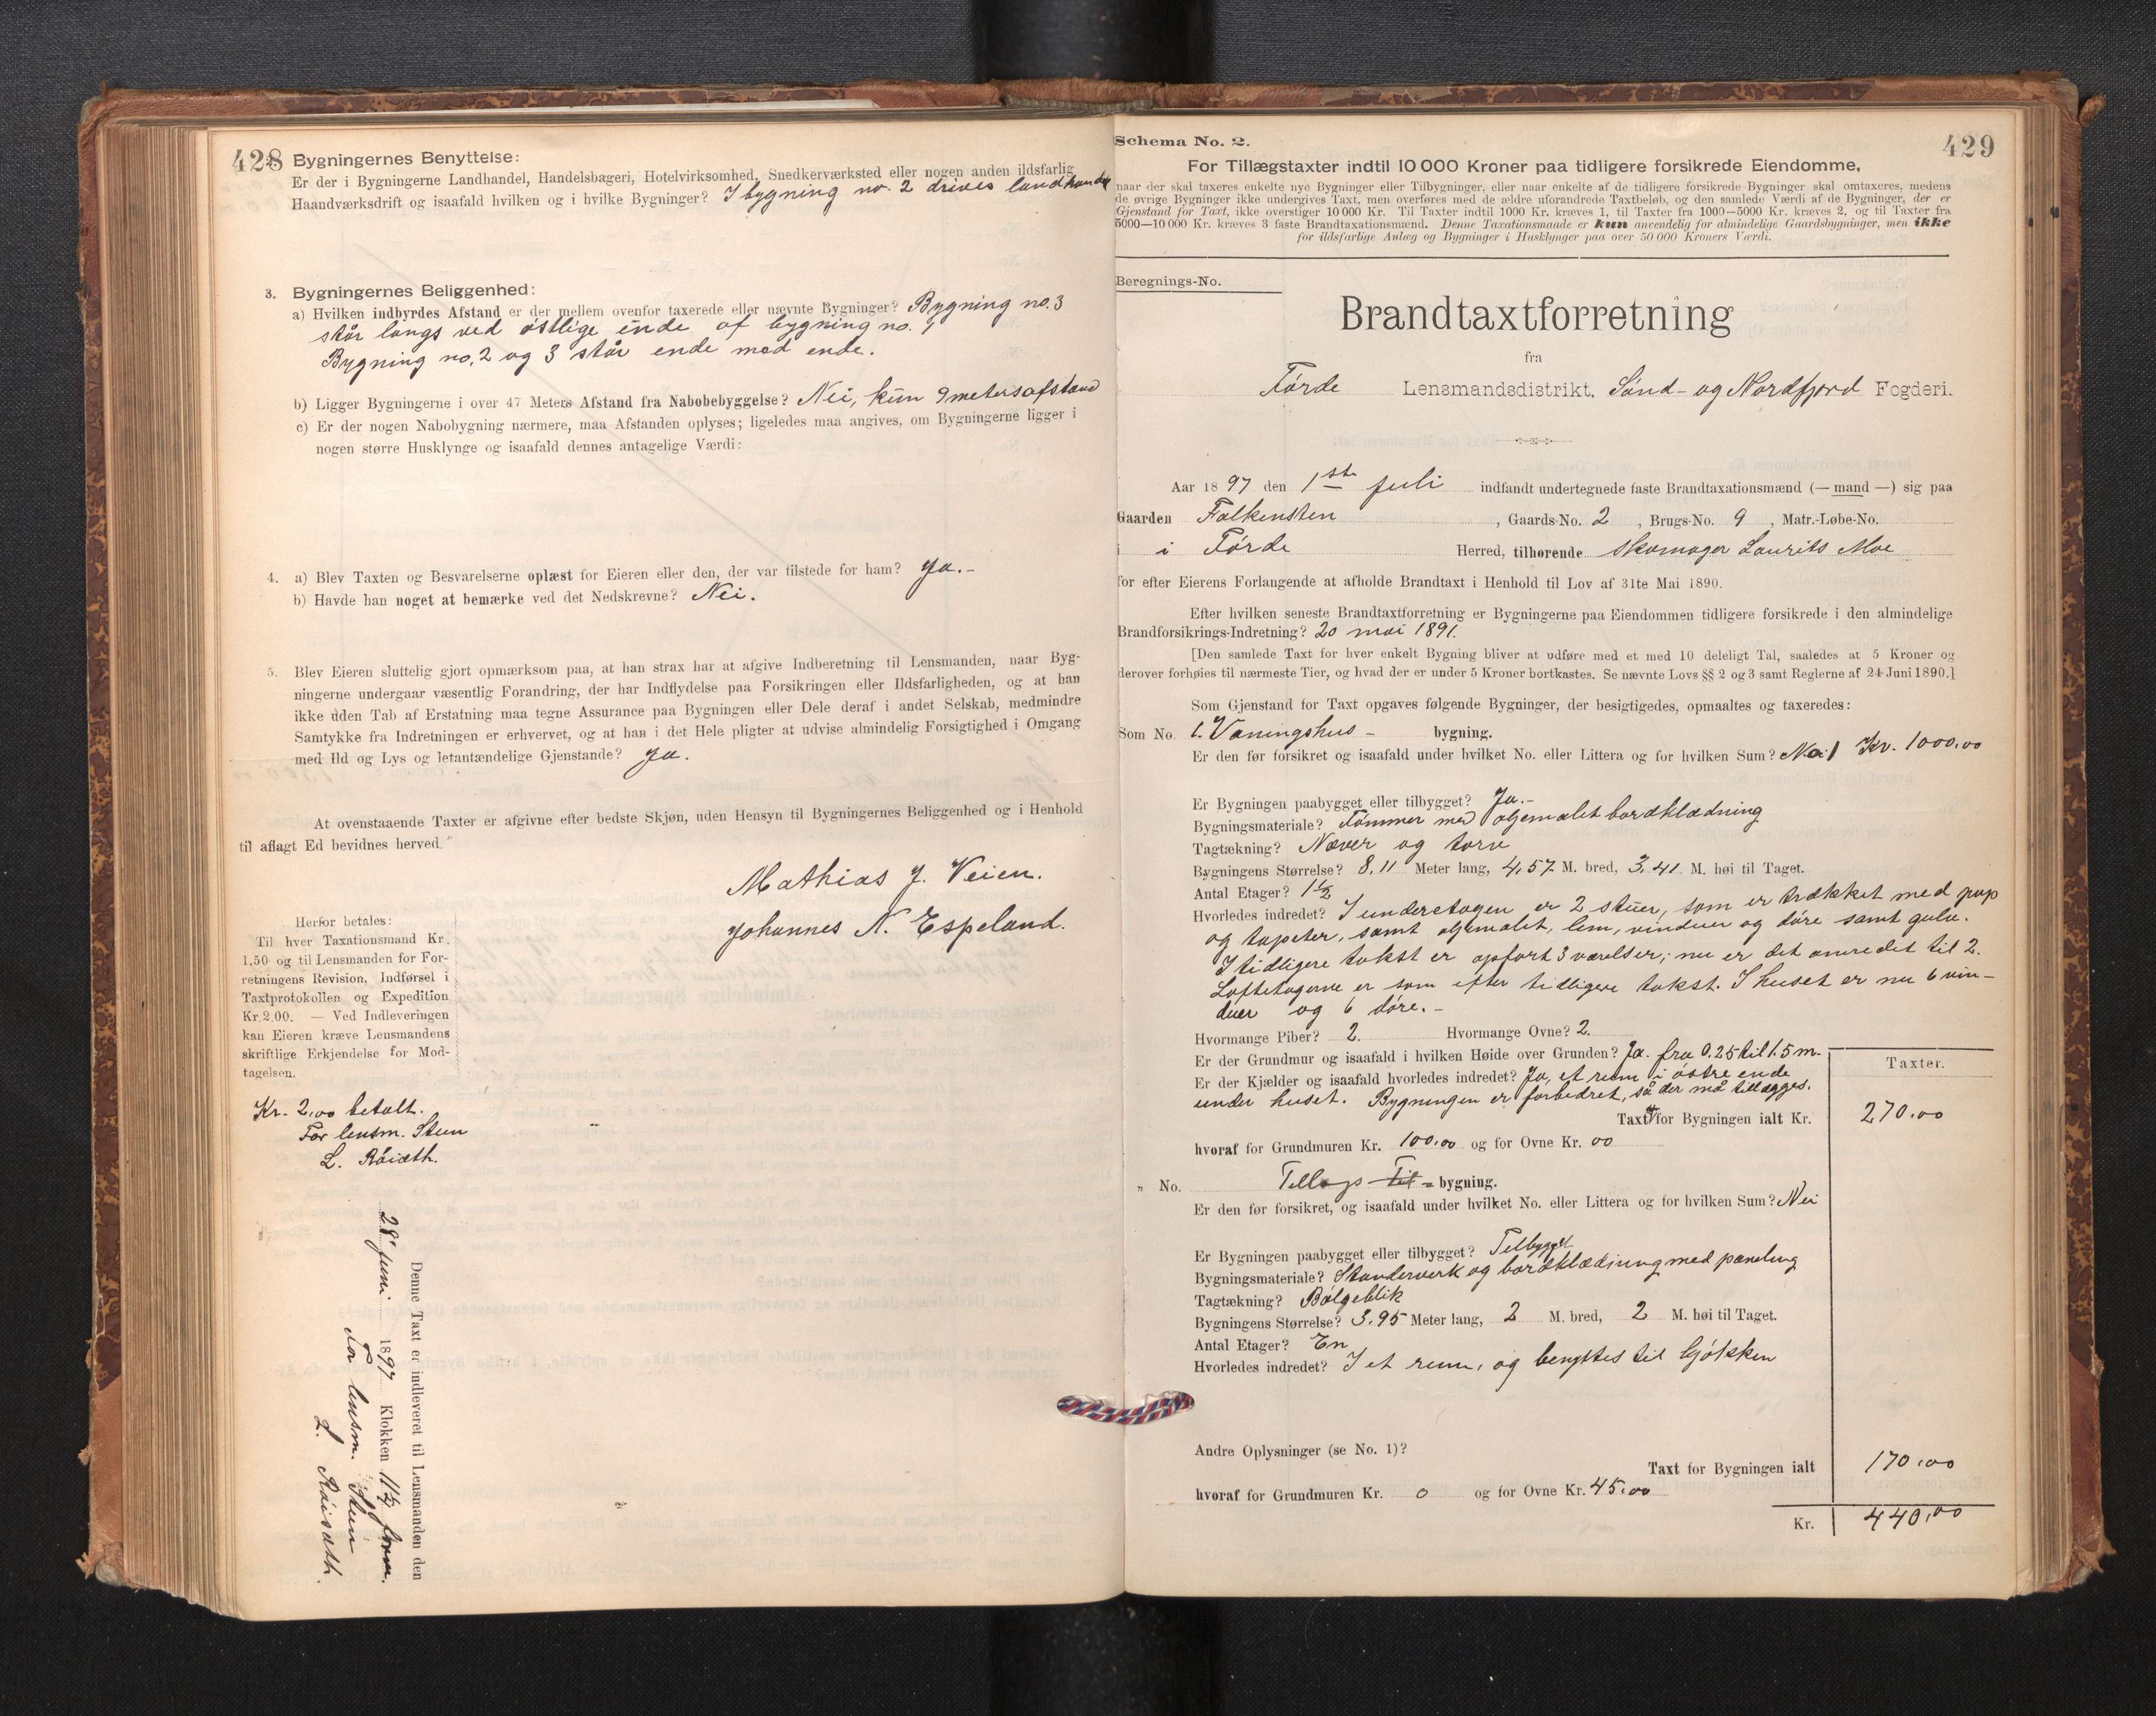 428
Bygningernes Benyttelse:
Er der i Bygningerne Landhandel, Handelsbageri, Hotelvirksomhed, Snedkerværksted eller nogen anden ildsfarlig
Haandværksdrift og isaafald hvilken og i hvilke Bygninger? I bygning no. 2 drives landhandel
3. Bygningernes Beliggenhed:
a) Hvilken indbyrdes Afstand er der mellem ovenfor taxerede eller nævnte Bygninger? Bygning no. 3
står langs ved östlige ende af bygning no. 1
Bygning no. 2 og 3 står ende mod ende.
b) Ligger Bygningerne i over 47 Meters Afstand fra Nabobebyggelse? Nei, kun 9 meters afstand
c) Er der nogen Nabobygning nærmere, maa Afstanden oplyses; ligeledes maa angives, om Bygningerne ligger i
nogen større Husklynge og isaafald dennes antagelige Værdi:
4. a) Blev Taxten og Besvarelserne oplæst for Eieren eller den, der var tilstede for ham? Ja.-
b) Havde han noget at bemærke ved det Nedskrevne? Nei.
5. Blev Eieren sluttelig gjort opmærksom paa, at han strax har at afgive Indberetning til Lensmanden, naar Byg-
ningerne undergaar væsentlig Forandring, der har Indflydelse paa Forsikringen eller Ildsfarligheden, og at han
ikke uden Tab af Erstatning maa tegne Assurance paa Bygningen eller Dele deraf i andet Selskab, medmindre
Samtykke fra Indretningen er erhvervet, og at han i det Hele pligter at udvise almindelig Forsigtighed i Omgang
med Ild og Lys og letantændelige Gjenstande? Ja.
At ovenstaaende Taxter er afgivne efter bedste Skjøn, uden Hensyn til Bygningernes Beliggenhed og i Henhold
til aflagt Ed bevidnes herved.
Mathias J. Veien.
Johannes N. Espeland.
Herfor betales:
Til hver Taxationsmand Kr.
1.50 og til Lensmanden for For-
retningens Revision, Indførsel i
Taxtprotokollen og Expedition
Kr. 2.00. — Ved Indleveringen
kan Eieren kræve Lensmandens
skriftlige Erkjendelse for Mod-
tagelsen.
Kr. 2,00 betalt.
For lensm. Steen
L. Råisæth.
Denne Taxt er indleveret til Lensmanden den
28' juni 1897 Klokken 11½ form.
For lensm. Steen
L. Råisæth.
Schema No. 2.
429
For Tillægstaxter indtil 10 000 Kroner paa tidligere forsikrede Eiendomme,
naar der skal taxeres enkelte nye Bygninger eller Tilbygninger, eller naar enkelte af de tidligere forsikrede Bygninger skal omtaxeres, medens
de øvrige Bygninger ikke undergives Taxt, men overføres med de ældre uforandrede Taxtbeløb, og den samlede Værdi af de Bygninger, der er
Gjenstand for Taxt, ikke overstiger 10 000 Kr. Til Taxter indtil 1000 Kr. kræves 1, til Taxter fra 1000—5000 Kr. kræves 2, og til Taxter fra
5000—10 000 Kr. kræves 3 faste Brandtaxationsmænd. Denne Taxationsmaade er kun anvendelig for almindelige Gaardsbygninger, men ikke
for ildsfarlige Anlæg og Bygninger i Husklynger paa over 50 000 Kroners Værdi.
Beregnings-No.
Brandtaxtforretning
fra
Førde Lensmandsdistrikt, Sönd- og Nordfjord Fogderi.
Aar 1897 den 1ste juli indfandt undertegnede faste Brandtaxationsmænd (— mand —) sig paa
Gaarden Falkensten, Gaards-No. 2, Brugs-No. 9, Matr.-Løbe-No.
i i Førde Herred, tilhørende skomager Laurits Moe
for efter Eierens Forlangende at afholde Brandtaxt i Henhold til Lov af 31te Mai 1890.
Efter hvilken seneste Brandtaxtforretning er Bygningerne paa Eiendommen tidligere forsikrede i den almindelige
Brandforsikrings-Indretning? 20 mai 1891.
[Den samlede Taxt for hver enkelt Bygning bliver at udføre med et med 10 deleligt Tal, saaledes at 5 Kroner og
derover forhøies til nærmeste Tier, og hvad der er under 5 Kroner bortkastes. Se nævnte Lovs §§ 2 og 3 samt Reglerne af 24 Juni 1890.]
Som Gjenstand for Taxt opgaves følgende Bygninger, der besigtigedes, opmaaltes og taxeredes:
Som No. 1. Vaningshus - bygning.
Er den før forsikret og isaafald under hvilket No. eller Littera og for hvilken Sum? No. 1 Kr. 1000,00
Er Bygningen paabygget eller tilbygget? Ja.-
Bygningsmateriale? Tømmer med oljemalet bordklædning
Tagtækning? Næver og torv
Bygningens Størrelse? 8,11 Meter lang, 4,57 M. bred, 3,41 M. høi til Taget.
Antal Etager? 1½
Hvorledes indredet? I underetagen er 2 stuer, som er trækket med pap
og tapeter, samt oljemalet, lem, vinduer og døre samt gulv.
I tidligere takst er opført 3 værelser; nu er det omredet til 2.
Loftetagerne er som efter tidligere takst. I huset er nu 6 vin-
duer og 6 døre.-
Hvormange Piber? 2. Hvormange Ovne? 2.
Er der Grundmur og isaafald i hvilken Høide over Grunden? Ja. fra 0.25 til 1.5 m.
Er der Kjælder og isaafald hvorledes indredet? Ja, et rum i østre ende
under huset. Bygningen er forbedret, så der må tillægges.
Taxter.
Taxt for Bygningen ialt Kr. 270,00
hvoraf for Grundmuren Kr. 100,00 og for Ovne Kr. 00
„ No. Tillægs Til = bygning.
Er den før forsikret, og isaafald under hvilket No. eller Littera og for hvilken Sum? Nei
Er Bygningen paabygget eller tilbygget? Tilbygget
Bygningsmateriale? Standerverk og bordklædning med paneling
Tagtækning? Bølgeblik
Bygningens Størrelse? 3,95 Meter lang, 2 M. bred, 2 M. høi til Taget.
Antal Etager? En
Hvorledes indredet? I et rum, og benyttes til kjøkken
Andre Oplysninger (se No. 1)?
Taxt for Bygningen ialt 170,00
hvoraf for Grundmuren Kr. 0 og for Ovne Kr. 45,00
Kr. 440,00